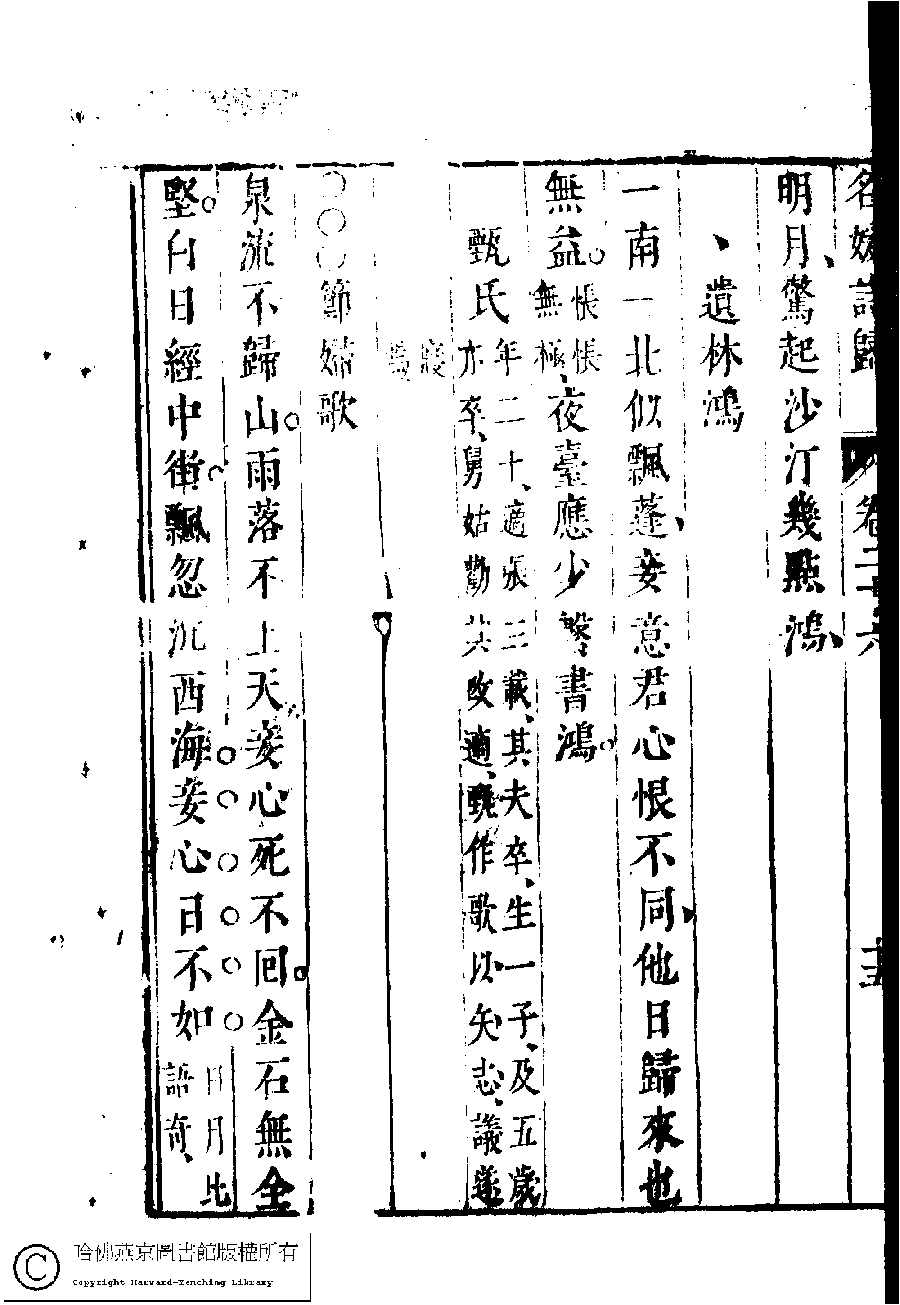 名媛詩歸 卷二十六 十五
明月、驚起沙汀幾點鴻、
、遺林鴻
一南一北似飄蓬、妾意君心恨不同、他日歸來也
無益。悵悵無極、夜臺應少繫書鴻。
甄氏 年二十、適張三載、其夫卒、生一子、及五歲
亦卒、舅姑勸其改適、甄作歌以矢志、議遂
寢
○○○節婦歌
泉流不歸山。雨落不上天、妾心死不回。金石無全
堅。白日經中街。飄忽沉西海、妾心日不如 日月比
語奇、